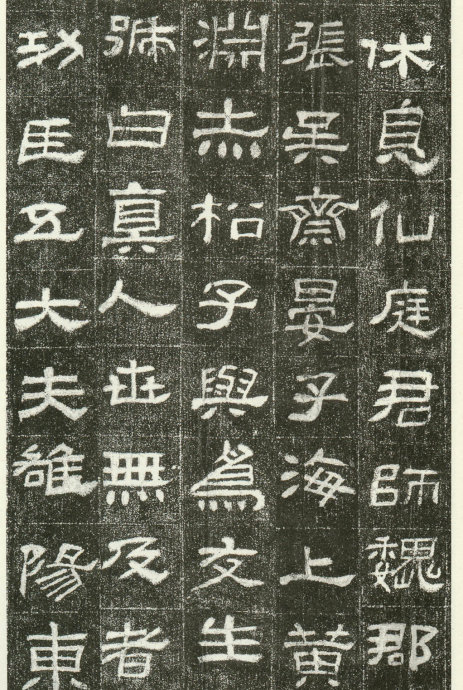 休息仙庭君師魏郡
張吳齋晏子海上黃
淵赤松子與爲友生
號曰真人世無及者
功臣五大夫雒陽東